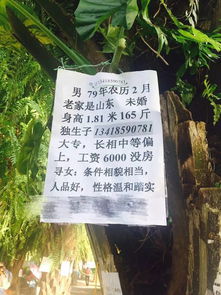 13418590781
男 79年农历2月
老家是山东 未婚
身高 1.81 米 165 斤
独生子 13418590781
大专，长相中等偏
上，工资 6000 没房
寻女：条件相貌相当，
人品好，性格温和踏实